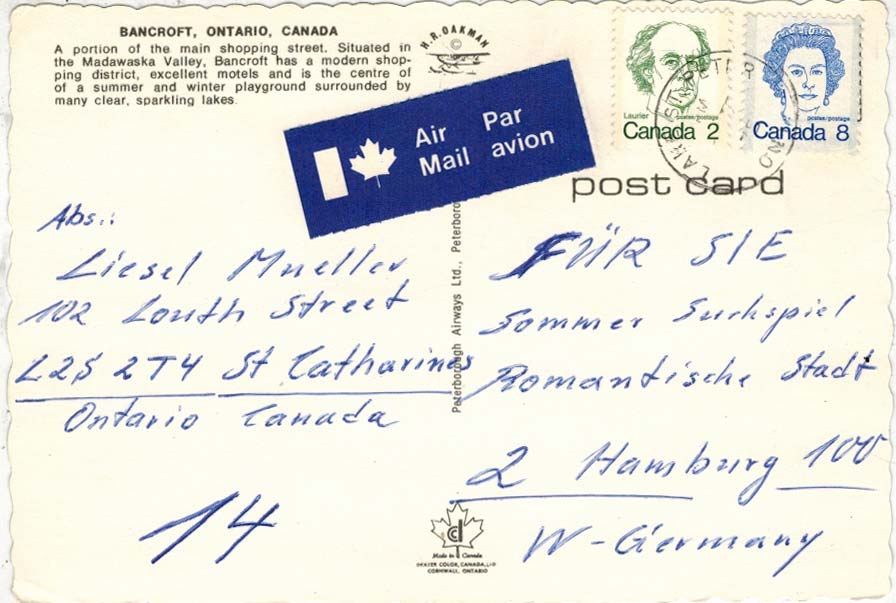 BANCROFT, ONTARIO, CANADA
A portion of the main shopping street. Situated in
the Madawaska Valley, Bancroft has a modern shop-
ping district, excellent motels and is the centre of
of a summer and winter playground surrounded by
many clear, sparkling lakes.
H.R. OAKMAN
©
Air Par
Mail avion
Laurier postes/postage
Canada 2
postes/postage
Canada 8
PETER
post card
Abs.:
Liesel Mueller
102 Louth Street
L2S 2T4 St Catharines
Ontario Canada
14
Peterborough Airways Ltd., Peterboro
FÜR SIE
Sommer Suchspiel
Romantische Stadt
2 Hamburg 100
W-Germany
Made in Canada
DEXTER COLOR, CANADA, LTD
CORNWALL, ONTARIO